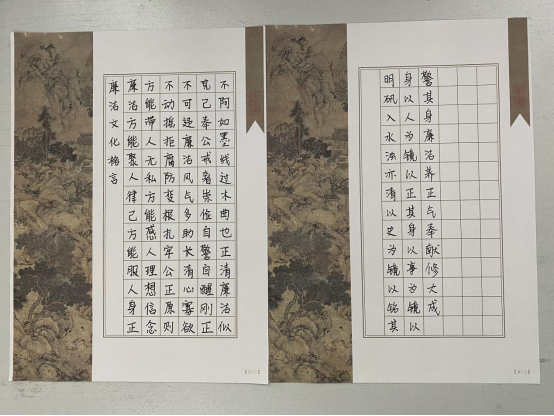 廉洁文化格言
廉洁方能聚人律己方能服人身正
方能带人无私方能感人理想信念
不动摇拒腐防变根扎牢公正原则
不可违廉洁风气多助长清心寡欲
克己奉公戒奢崇俭自警自醒刚正
不阿如墨线过木曲也正清廉洁似
明矾入水浊亦清以史为镜以铭其
身以人为镜以正其身以事为镜以
警其身廉洁养正气奉献修大成